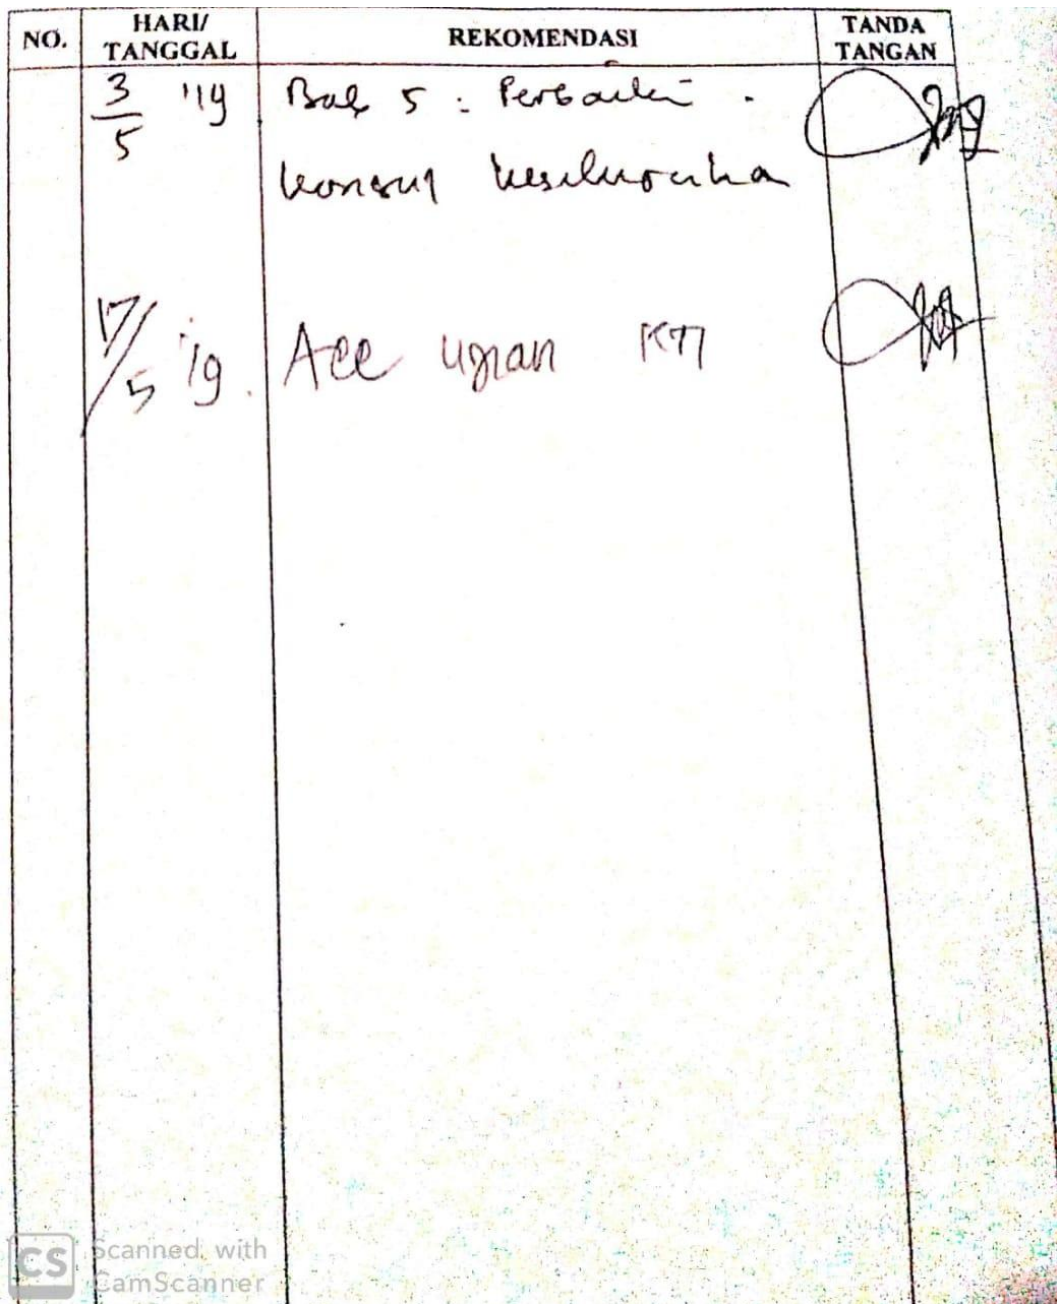 NO.
HARI/
TANGGAL
REKOMENDASI
TANDA
TANGAN
3/5 '19 Bab 5 : Perbaiki .
konsul keseluruhan
17/5 '19. Acc ujian KTI
CS Scanned with
CamScanner